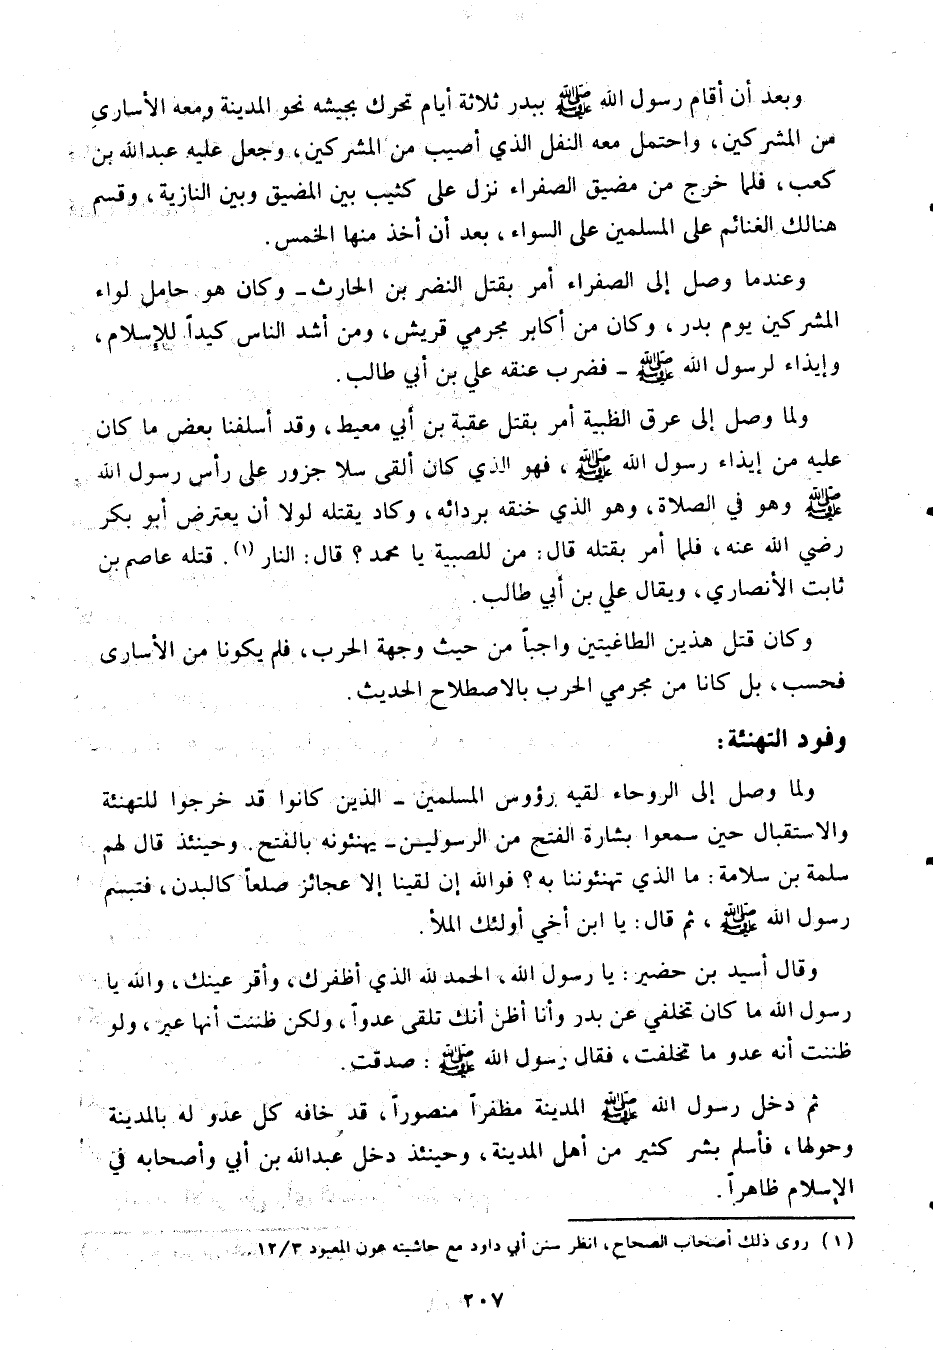 وبعد أن أقام رسول الله ﷺ ببدر ثلاثة أيام تحرك بجيشه نحو المدينة ومعه الأسارى
من المشركين، واحتمل معه النفل الذي أصيب من المشركين، وجعل عليه عبدالله بن
كعب، فلما خرج من مضيق الصفراء نزل على كثيب بين المضيق وبين النازية، وقسم
هنالك الغنائم على المسلمين على السواء، بعد أن أخذ منها الخمس.
وعندما وصل إلى الصفراء أمر بقتل النضر بن الحارث ـ وكان هو حامل لواء
المشركين يوم بدر، وكان من أكابر مجرمي قريش، ومن أشد الناس كيداً للإسلام،
وإيذاء لرسول الله ﷺ ـ فضرب عنقه علي بن أبي طالب.
ولما وصل إلى عرق الظبية أمر بقتل عقبة بن أبي معيط، وقد أسلفنا بعض ما كان
عليه من إيذاء رسول الله ﷺ، فهو الذي كان ألقى سلا جزور على رأس رسول الله
ﷺ وهو في الصلاة، وهو الذي خنقه بردائه، وكاد يقتله لولا أن يعترض أبو بكر
رضي الله عنه، فلما أمر بقتله قال: من للصبية يا محمد؟ قال: النار (١). قتله عاصم بن
ثابت الأنصاري، ويقال علي بن أبي طالب.
وكان قتل هذين الطاغيتين واجباً من حيث وجهة الحرب، فلم يكونا من الأسارى
فحسب، بل كانا من مجرمي الحرب بالاصطلاح الحديث.
وفود التهنئة:
ولما وصل إلى الروحاء لقيه رؤوس المسلمين ـ الذين كانوا قد خرجوا للتهنئة
والاستقبال حين سمعوا بشارة الفتح من الرسولين ـ يهنئونه بالفتح. وحينئذ قال لهم
سلمة بن سلامة: ما الذي تهنئوننا به؟ فوالله إن لقينا إلا عجائز صلعاً كالبدن، فتبسم
رسول الله ﷺ، ثم قال: يا ابن أخي أولئك الملأ.
وقال أسيد بن حضير: يا رسول الله، الحمد لله الذي أظفرك، وأقر عينك، والله يا
رسول الله ما كان تخلفي عن بدر وأنا أظن أنك تلقى عدواً، ولكن ظننت أنها عير، ولو
ظننت أنه عدو ما تخلفت، فقال رسول الله ﷺ: صدقت.
ثم دخل رسول الله ﷺ المدينة مظفراً منصوراً، قد خافه كل عدو له بالمدينة
وحولها، فأسلم بشر كثير من أهل المدينة، وحينئذ دخل عبدالله بن أبي وأصحابه في
الإسلام ظاهراً.
(١) روى ذلك أصحاب الصحاح، انظر سنن أبي داود مع حاشيته عون المعبود ١٢/٣.
٢٠٧